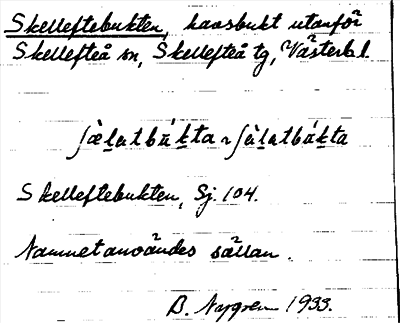 Skelleftebukten, havsbukt utanför
Skellefteå sn, Skellefteå tg, Västerb. l.
Skelleftebukten, Sj. 104.
Namnet användes sällan.
B. Nygren 1933.